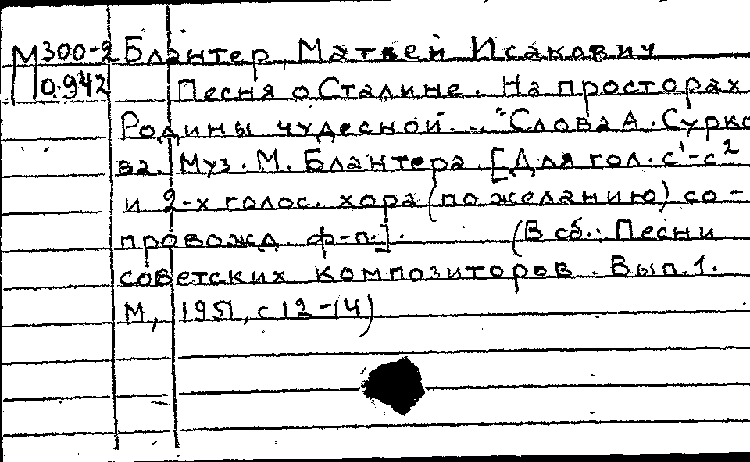 М300-2 Блантер Матвей Исакович
П0.942 Песня о Сталине. На просторах
Родины чудесной... "Слова А. Сурко
ва. Муз. М. Блантера. [Для гол. c¹-c²
и 2-х голос. хора (по желанию) со-
провожд. ф-п.]. (В сб.: Песни
советских композиторов. Вып. 1.
М, 1951, с 12-14)